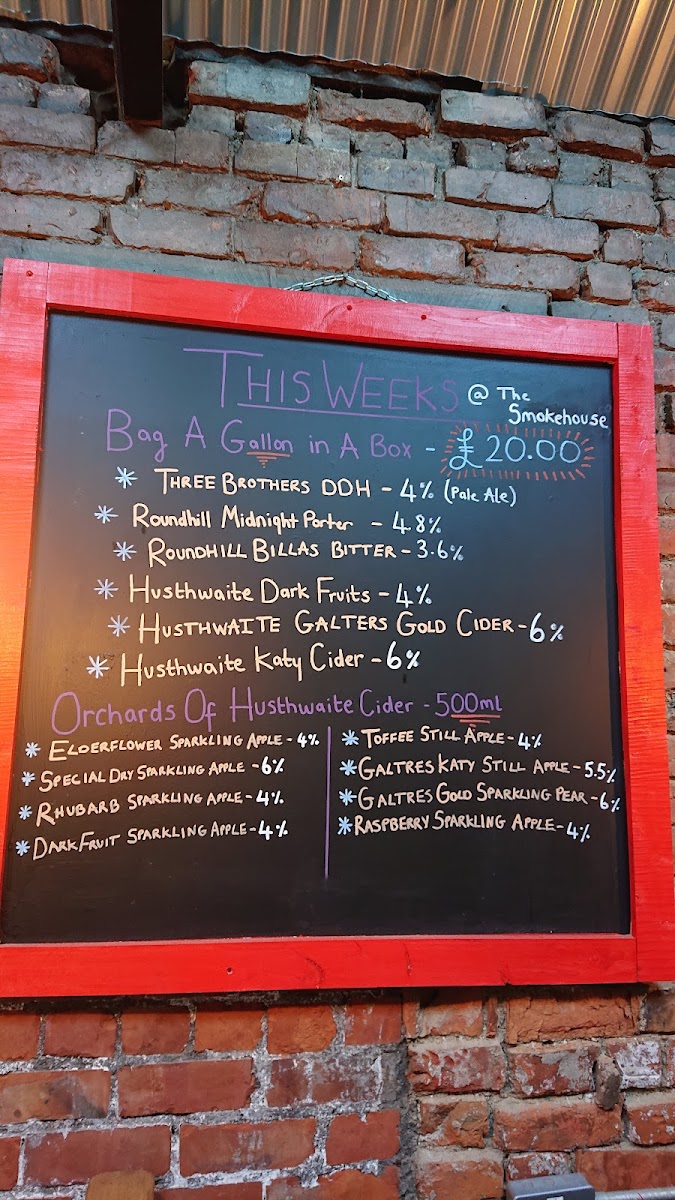 THIS WEEKS @ The Smokehouse
Bag A Gallon in A Box - £20.00
* THREE BROTHERS DDH - 4% (Pale Ale)
* Roundhill Midnight Porter - 4.8%
* ROUNDHILL BILLAS BITTER - 3.6%
* Husthwaite Dark Fruits - 4%
* HUSTHWAITE GALTERS GOLD CIDER - 6%
* Husthwaite Katy Cider - 6%
Orchards Of Husthwaite Cider - 500ml
* ELDERFLOWER SPARKLING APPLE - 4%
* SPECIAL DRY SPARKLING APPLE - 6%
* RHUBARB SPARKLING APPLE - 4%
* DARK FRUIT SPARKLING APPLE - 4%
* TOFFEE STILL APPLE - 4%
* GALTRES KATY STILL APPLE - 5.5%
* GALTRES GOLD SPARKLING PEAR - 6%
* RASPBERRY SPARKLING APPLE - 4%